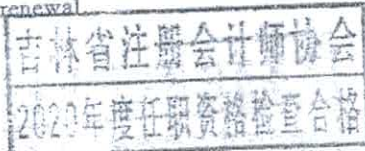 renewal.
吉林省注册会计师协会
2020年度任职资格检查合格